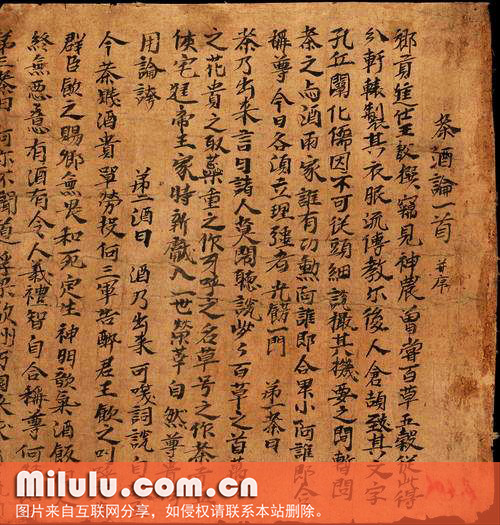 茶酒論一首 并序
鄉貢進士王敷撰 竊見神農曾嘗百草五穀從此得
分軒轅製其衣服流傳教示後人倉頡致其文字
孔丘闡化儒因不可從頭細說撮其樞要之陳暫問
茶之与酒兩家誰有功勳阿誰即合卑小阿誰即合
稱尊今日各須立理強者先飾一門 第一茶曰
茶乃出来言曰諸人莫鬧聽說些々百草之首萬
之花貴之取蘂重之作芽呼之名草号之作茶
侯宅逞帝王家時新獻入一世榮華自然尊
用論誇 第二酒曰 酒乃出来可笑詞說自
今茶賤酒貴單勞投河三軍告醉君王飲之叫
群臣飲之賜卿無畏和死定生神明歆氣酒飯
終無惡意有酒有令人義禮智自合稱尊何
Milulu.com.cn
图片来自互联网分享，如侵权请联系本站删除。